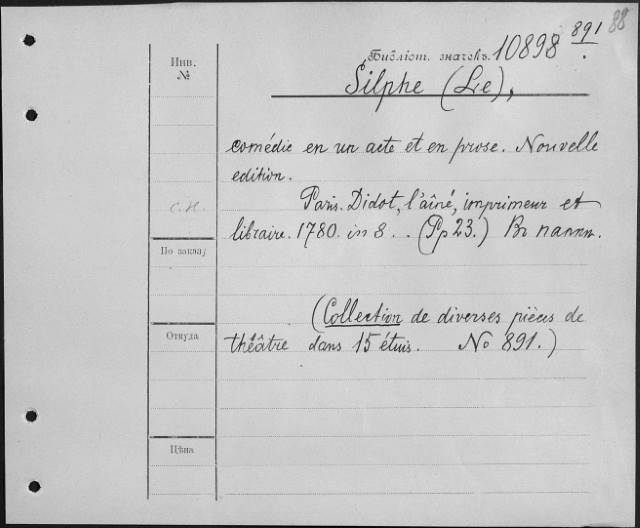 88
Инв.
№
Библіот. значекъ. 10898 891
Silphe (Le),
comédie en un acte et en prose. Nouvelle
edition.
Paris. Didot, l'aîné, imprimeur et
libraire. 1780. in 8. .. (Pp 23.) Въ папкѣ.
С. К.
По заказу
(Collection de diverses pièces de
théâtre dans 15 étuis. No 891.)
Откуда
Цѣна